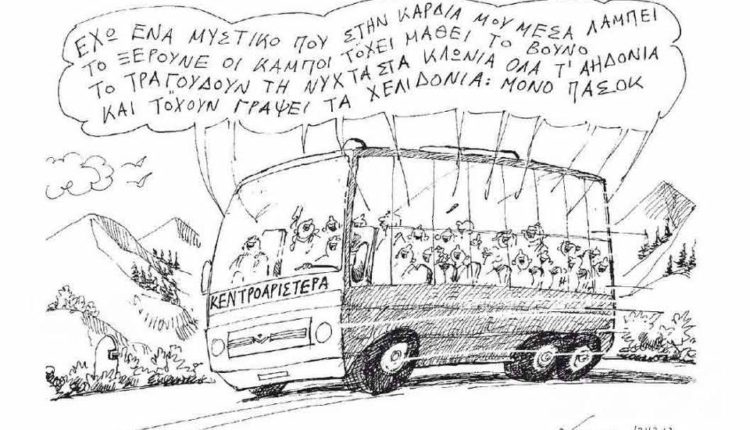 ΕΧΩ ΕΝΑ ΜΥΣΤΙΚΟ ΠΟΥ ΣΤΗΝ ΚΑΡΔΙΑ ΜΟΥ ΜΕΣΑ ΛΑΜΠΕΙ
ΤΟ ΞΕΡΟΥΝΕ ΟΙ ΚΑΜΠΟΙ ΤΟΧΕΙ ΜΑΘΕΙ ΤΟ ΒΟΥΝΟ
ΤΟ ΤΡΑΓΟΥΔΟΥΝ ΤΗ ΝΥΧΤΑ ΣΤΑ ΚΛΩΝΙΑ ΟΛΑ Τ' ΑΗΔΟΝΙΑ
ΚΑΙ ΤΟΧΟΥΝ ΓΡΑΨΕΙ ΤΑ ΧΕΛΙΔΟΝΙΑ: ΜΟΝΟ ΠΑΣΟΚ
ΚΕΝΤΡΟΑΡΙΣΤΕΡΑ